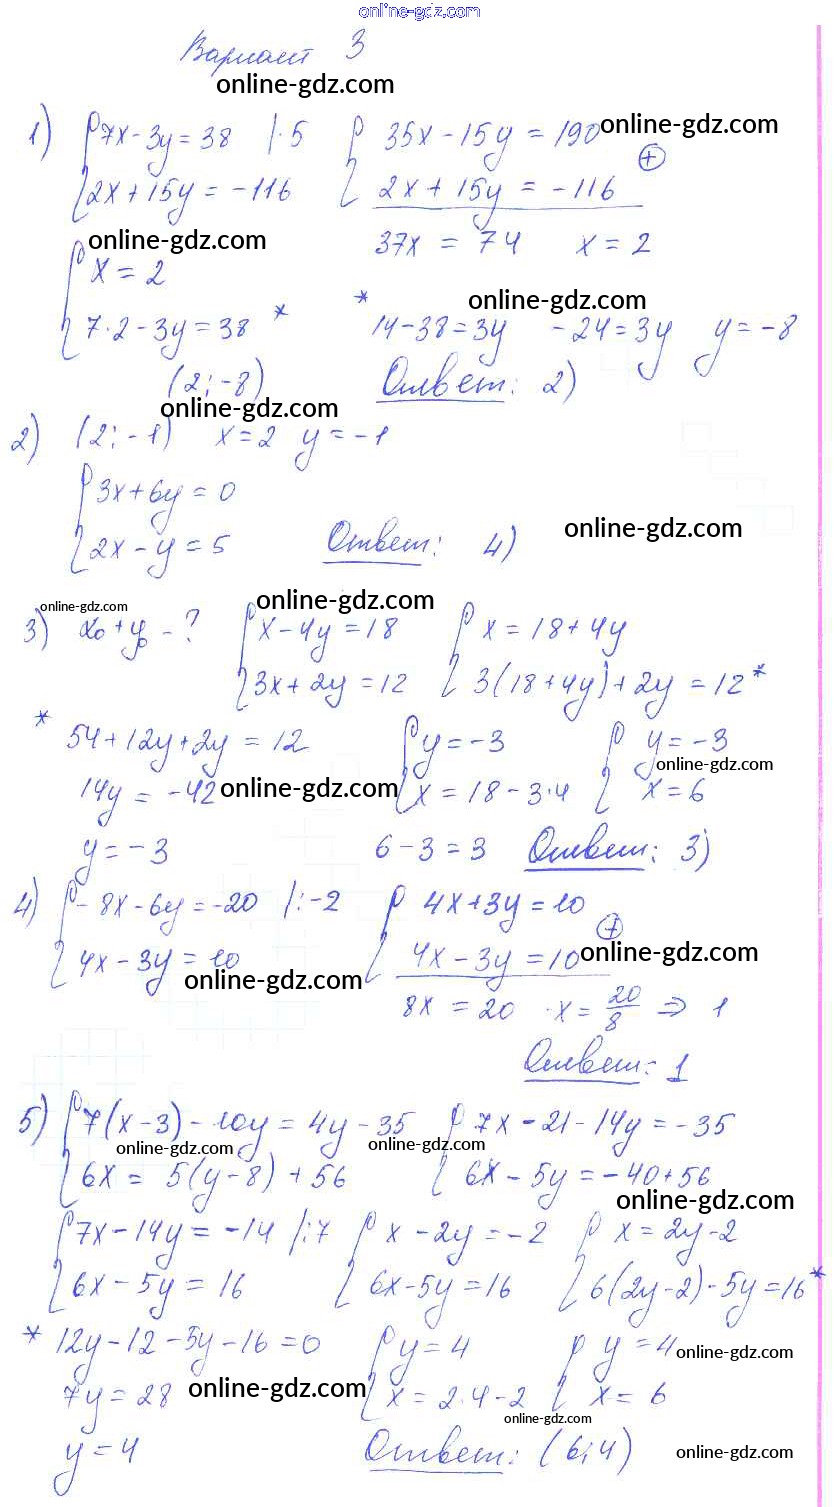 online-gdz.com
Вариант 3
online-gdz.com
1) { 7x - 3y = 38 | · 5 { 35x - 15y = 190 online-gdz.com
2x + 15y = -116 2x + 15y = -116 (+)
online-gdz.com 37x = 74 x = 2
{ x = 2
online-gdz.com
7·2 - 3y = 38 * * 14 - 38 = 3y -24 = 3y y = -8
(2; -8) Ответ: 2)
online-gdz.com
2) (2; -1) x = 2 y = -1
{ 3x + 6y = 0
2x - y = 5 Ответ: 4) online-gdz.com
online-gdz.com online-gdz.com
3) x₀ + y₀ - ? { x - 4y = 18 { x = 18 + 4y
3x + 2y = 12 3(18 + 4y) + 2y = 12 *
* 54 + 12y + 2y = 12 { y = -3 { y = -3
online-gdz.com
14y = -42 online-gdz.com x = 18 - 3·4 x = 6
y = -3 6 - 3 = 3 Ответ: 3)
4) { - 8x - 6y = -20 | : -2 { 4x + 3y = 10
4x - 3y = 10 4x - 3y = 10 (+) online-gdz.com
online-gdz.com
8x = 20 · x = 20/8 ⇒ 1
Ответ: 1
5) { 7(x - 3) - 10y = 4y - 35 { 7x - 21 - 14y = -35
online-gdz.com online-gdz.com
6x = 5(y - 8) + 56 6x - 5y = -40 + 56
online-gdz.com
{ 7x - 14y = -14 | : 7 { x - 2y = -2 { x = 2y - 2
6x - 5y = 16 6x - 5y = 16 6(2y - 2) - 5y = 16 *
* 12y - 12 - 5y - 16 = 0 { y = 4 { y = 4 online-gdz.com
7y = 28 online-gdz.com x = 2·4 - 2 x = 6
online-gdz.com
y = 4 Ответ: (6; 4) online-gdz.com